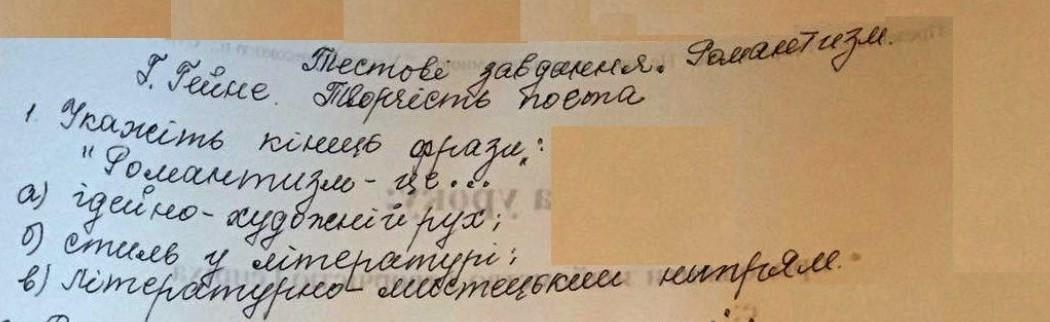 Тестове завдання. Романтизм.
Г. Гейне. Творчість поета
1. Укажіть кінець фрази:
"Романтизм - це..."
а) ідейно-художній рух;
б) стиль у літературі;
в) літературно-мистецький напрям.